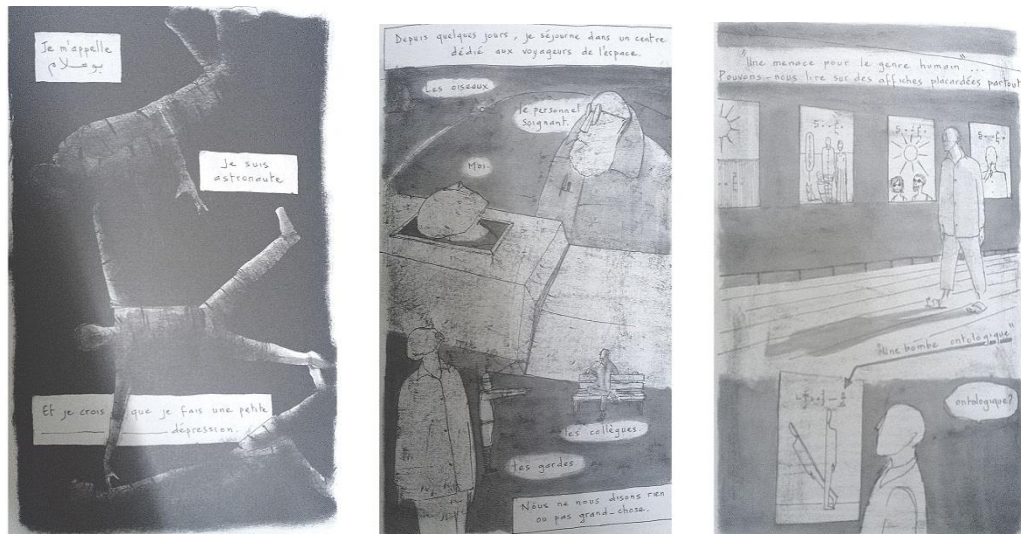 Je m'appelle
بوعلام
Je suis
astronaute
Et je crois que je fais une petite
dépression.
Depuis quelques jours, je séjourne dans un centre
dédié aux voyageurs de l'espace.
Les oiseaux
le personnel
soignant.
Moi
les collègues.
les gardes
Nous ne nous disons rien
ou pas grand-chose.
"Une menace pour le genre humain"...
Pouvons-nous lire sur des affiches placardées partout
"Une bombe ontologique"
ontologique?